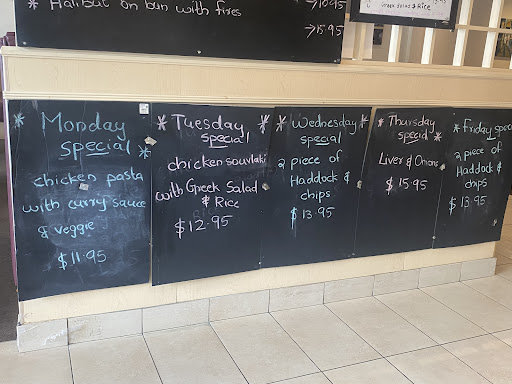 * Halibut on bun with fires
→ 10.95
→ 15.95
Greek Salad & Rice
* Monday
special *
chicken pasta
with curry sauce
& veggie
$ 11.95
* Tuesday
special *
chicken souvlaki
with Greek Salad
& Rice
$ 12.95
* Wednesday *
special
2 piece of
Haddock &
chips
$ 13.95
* Thursday
special *
Liver & Onions
$ 15.95
* Friday special
2 piece of
Haddock &
chips
$ 13.95